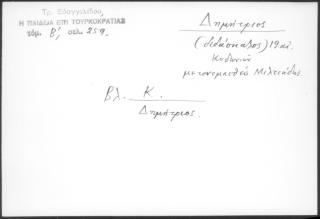 Τρ. Εὐαγγελίδου,
Η ΠΑΙΔΕΙΑ ΕΠΙ ΤΟΥΡΚΟΚΡΑΤΙΑΣ
τόμ. Β', σελ. 259.
Δημήτριος
(διδάσκαλος) 19 αἰ.
Κυδωνιῶν
μετονομασθεὶς Μιλτιάδης.
Βλ. Κ.
Δημήτριος.